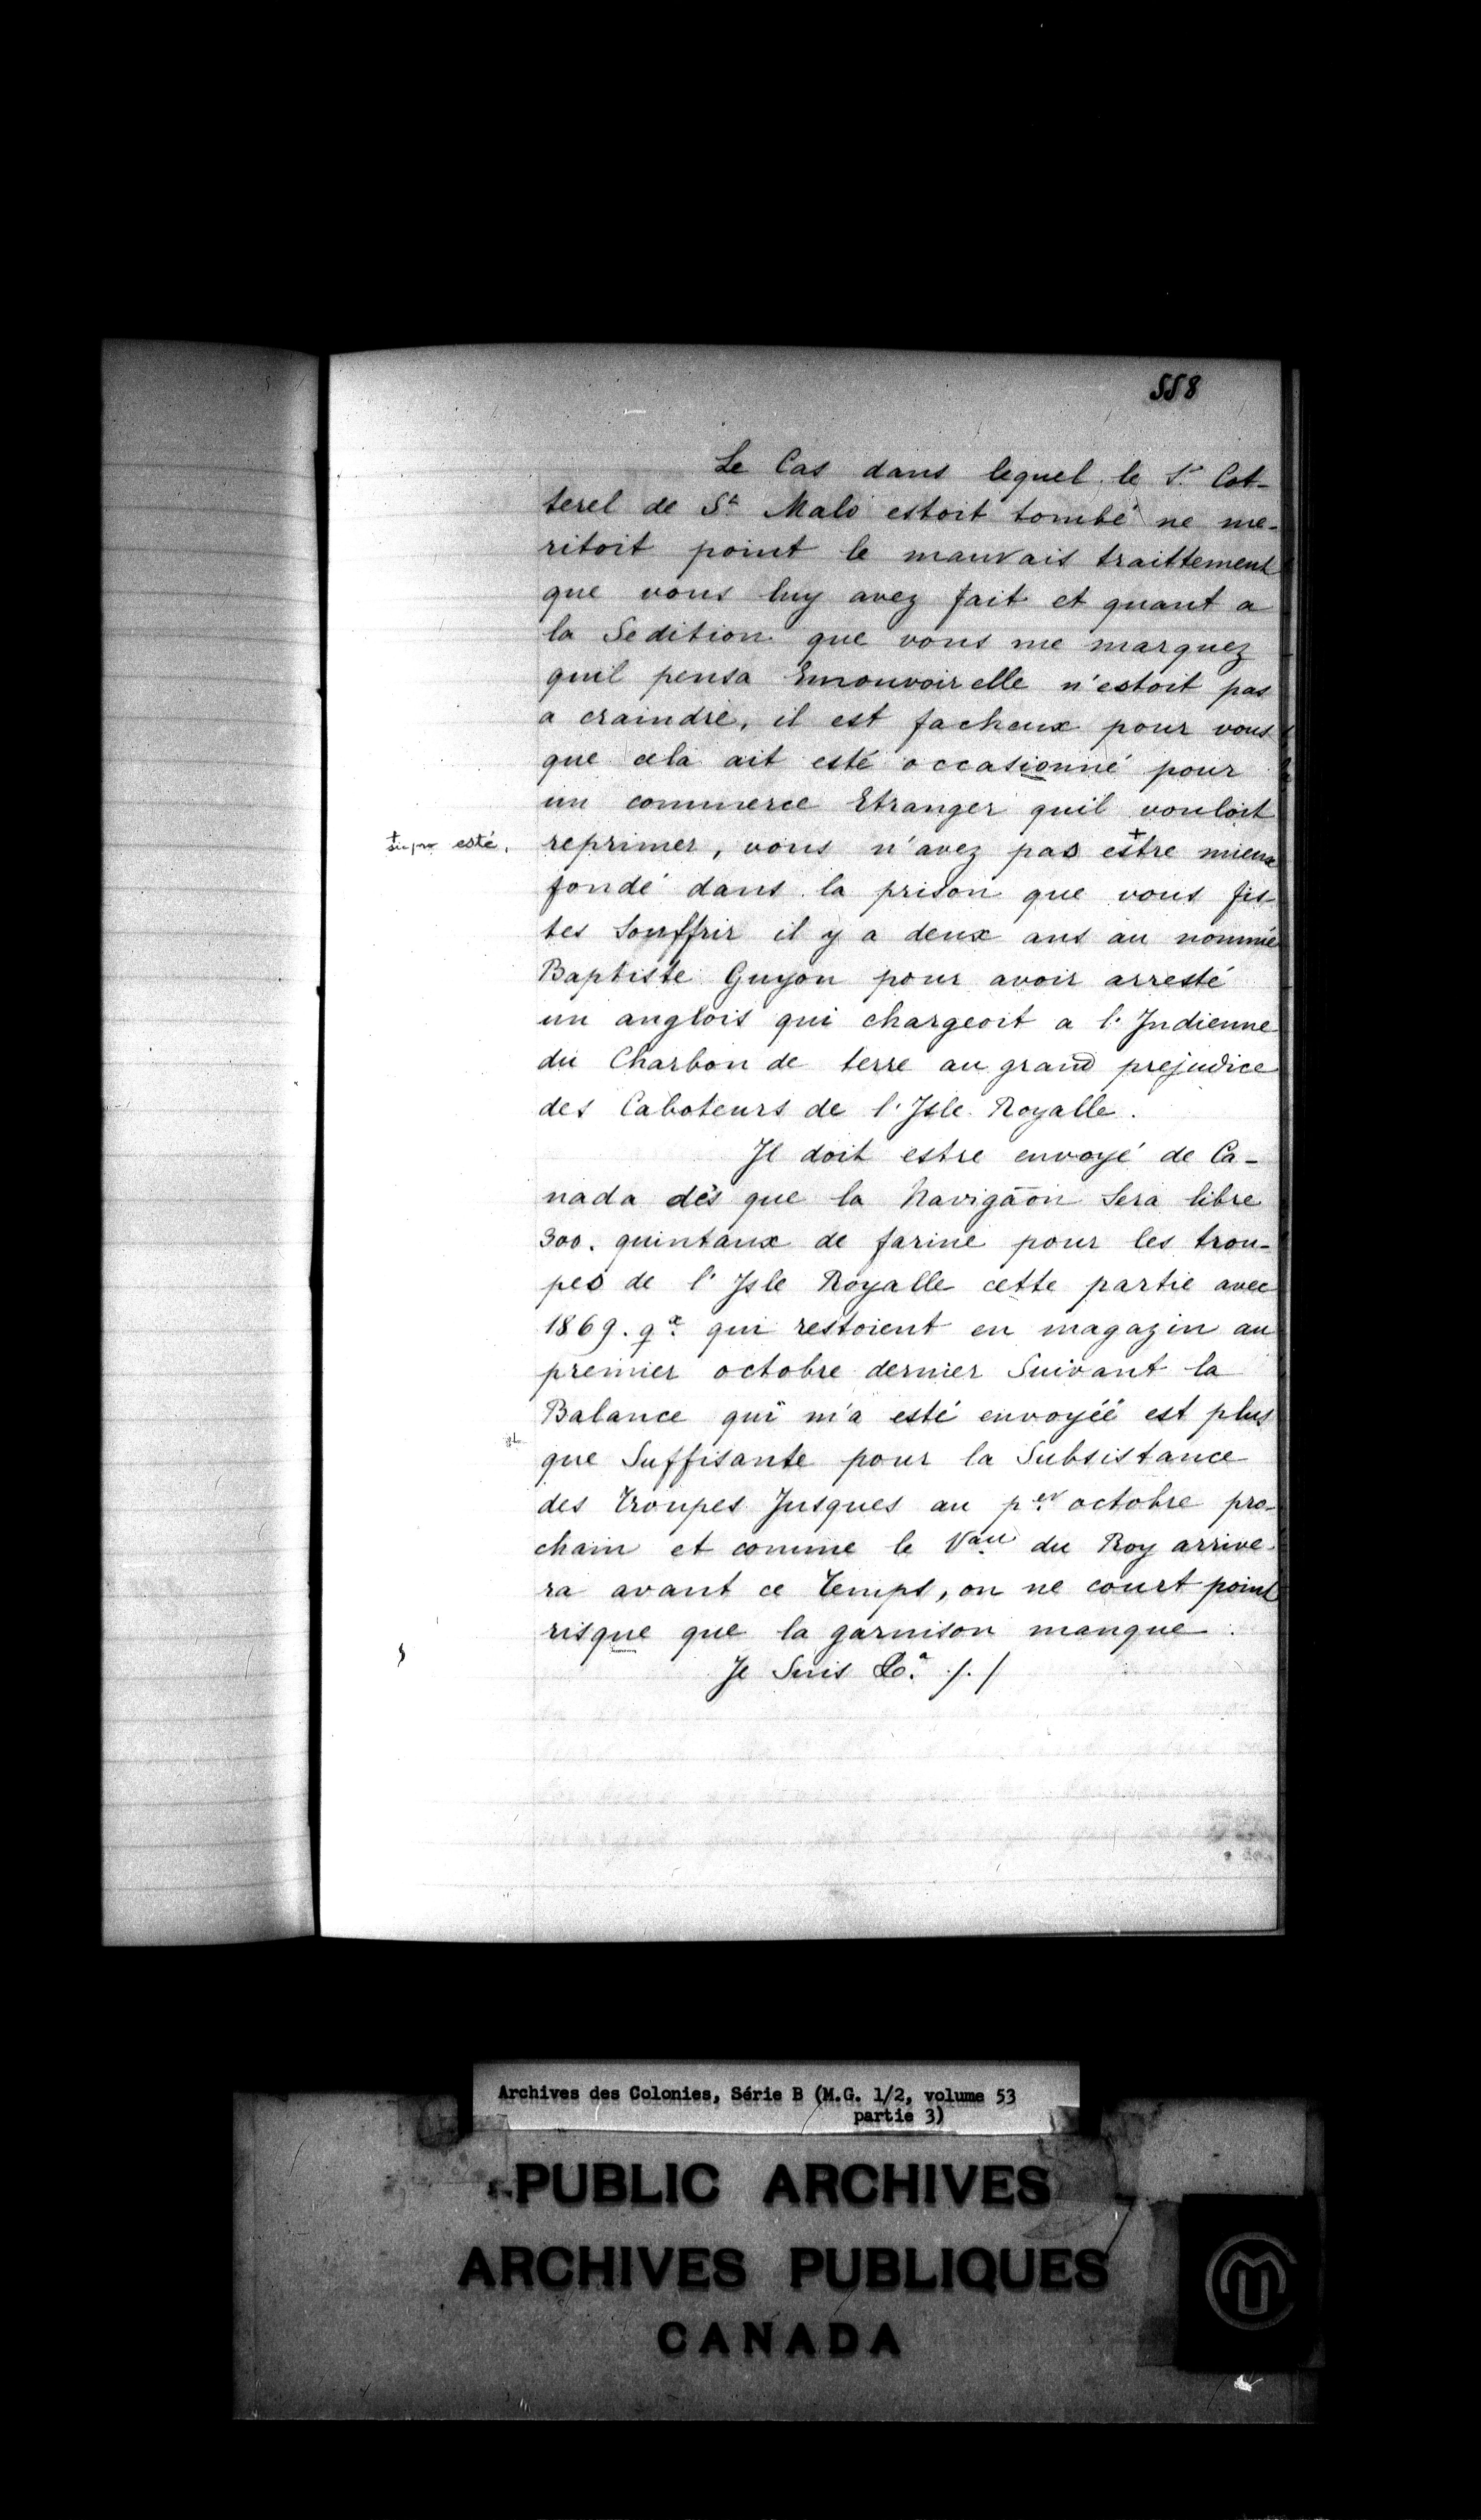 558
Le Cas dans lequel le Sr. Cot-
terel de St. Malo estoit tombé ne me-
ritoit point le mauvais traittement
que vous luy avez fait et quant a
la Sedition que vous me marquez
quil pensa Emouvoir elle n'estoit pas
a craindre, il est facheux pour vous
que cela ait esté occasionné pour
un commerce Etranger quil vouloit
+ esté.
reprimer, vous n'avez pas + estre mieux
fondé dans la prison que vous fis-
tes Souffrir il y a deux ans au nommé
Baptiste Guyon pour avoir arresté
un anglois qui chargeoit a l'Indienne
du Charbon de terre au grand prejudice
des Caboteurs de l'Isle Royalle.
Il doit estre envoyé de Ca-
nada dés que la Navigãon Sera libre
300. quintaux de farine pour les trou-
pes de l'Isle Royalle cette partie avec
1869. qx. qui restoient en magazin au
premier octobre dernier Suivant la
Balance qui m'a esté envoyéé est plus
que Suffisante pour la Subsistance
des Troupes Jusques au per. octobre pro-
chain et comme le Vau du Roy arrive-
ra avant ce Temps, on ne court point
risque que la garnison manque.
Je Suis &a. /. /
Archives des Colonies, Série B (M.G. 1/2, volume 53
partie 3)
PUBLIC ARCHIVES
ARCHIVES PUBLIQUES
CANADA